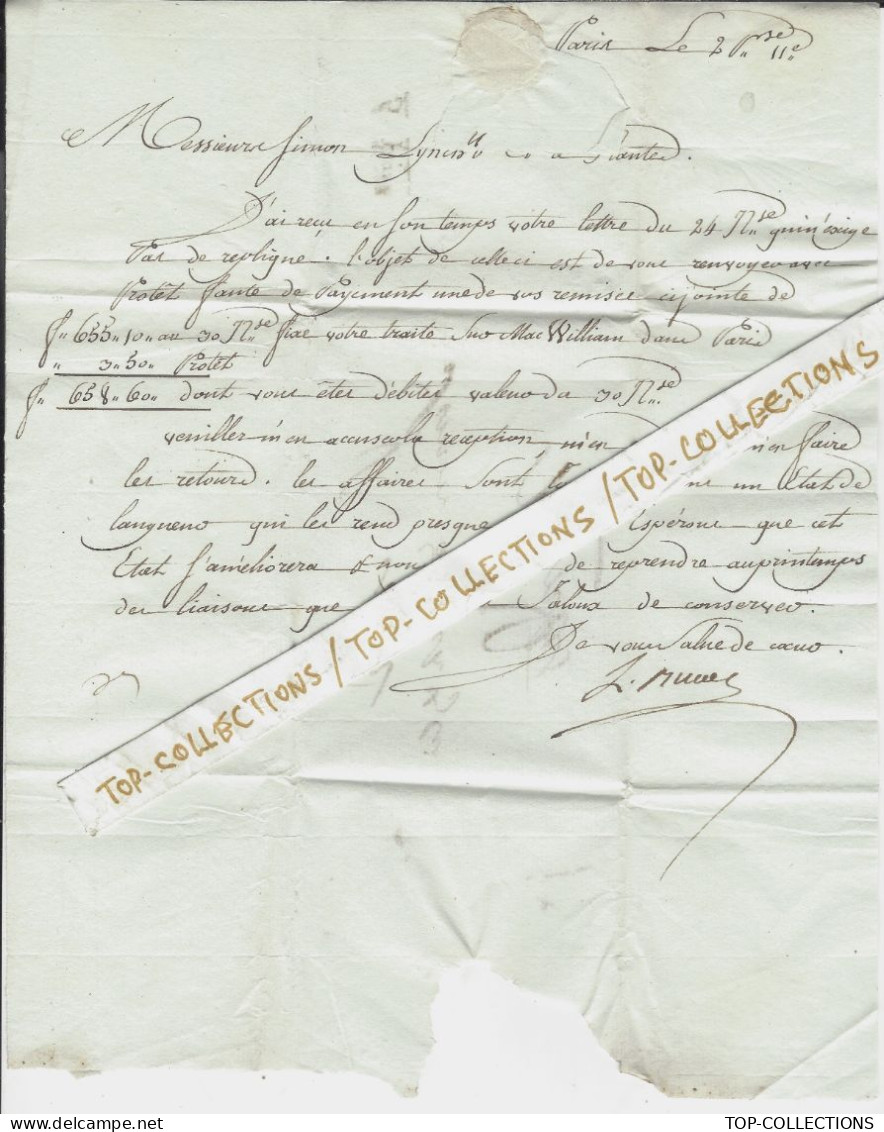 Paris Le 2 P.se 11e
Messieurs Simon a Nantes.
J'ai reçu en son tems vôtre lettre du 24 N.se qui n'éxige
Pas de repligue. l'objet de celleci est de vous renvoyer avec
Protêt faute de Payement une de vos remises cijointe de
f" 655" 10" au 30 N.se fixe votre traite sur Mac William dans Paris
" 3" 50" Protêt
f" 658" 60" dont vous êtes débités valeur du 30 N.se
veuiller m'en accuser la reception, m'en n'en faire
les retours. les affaires sont un Etat de
langueur qui les rend presque Espérons que cet
Etat s'améliorera & nous de reprendre au printems
des liaisons que Jaloux de conserver.
Je vous salue de coeur.
TOP-COLLECTIONS / TOP-COLLECTIONS / TOP-COLLECTIONS
TOP-COLLECTIONS